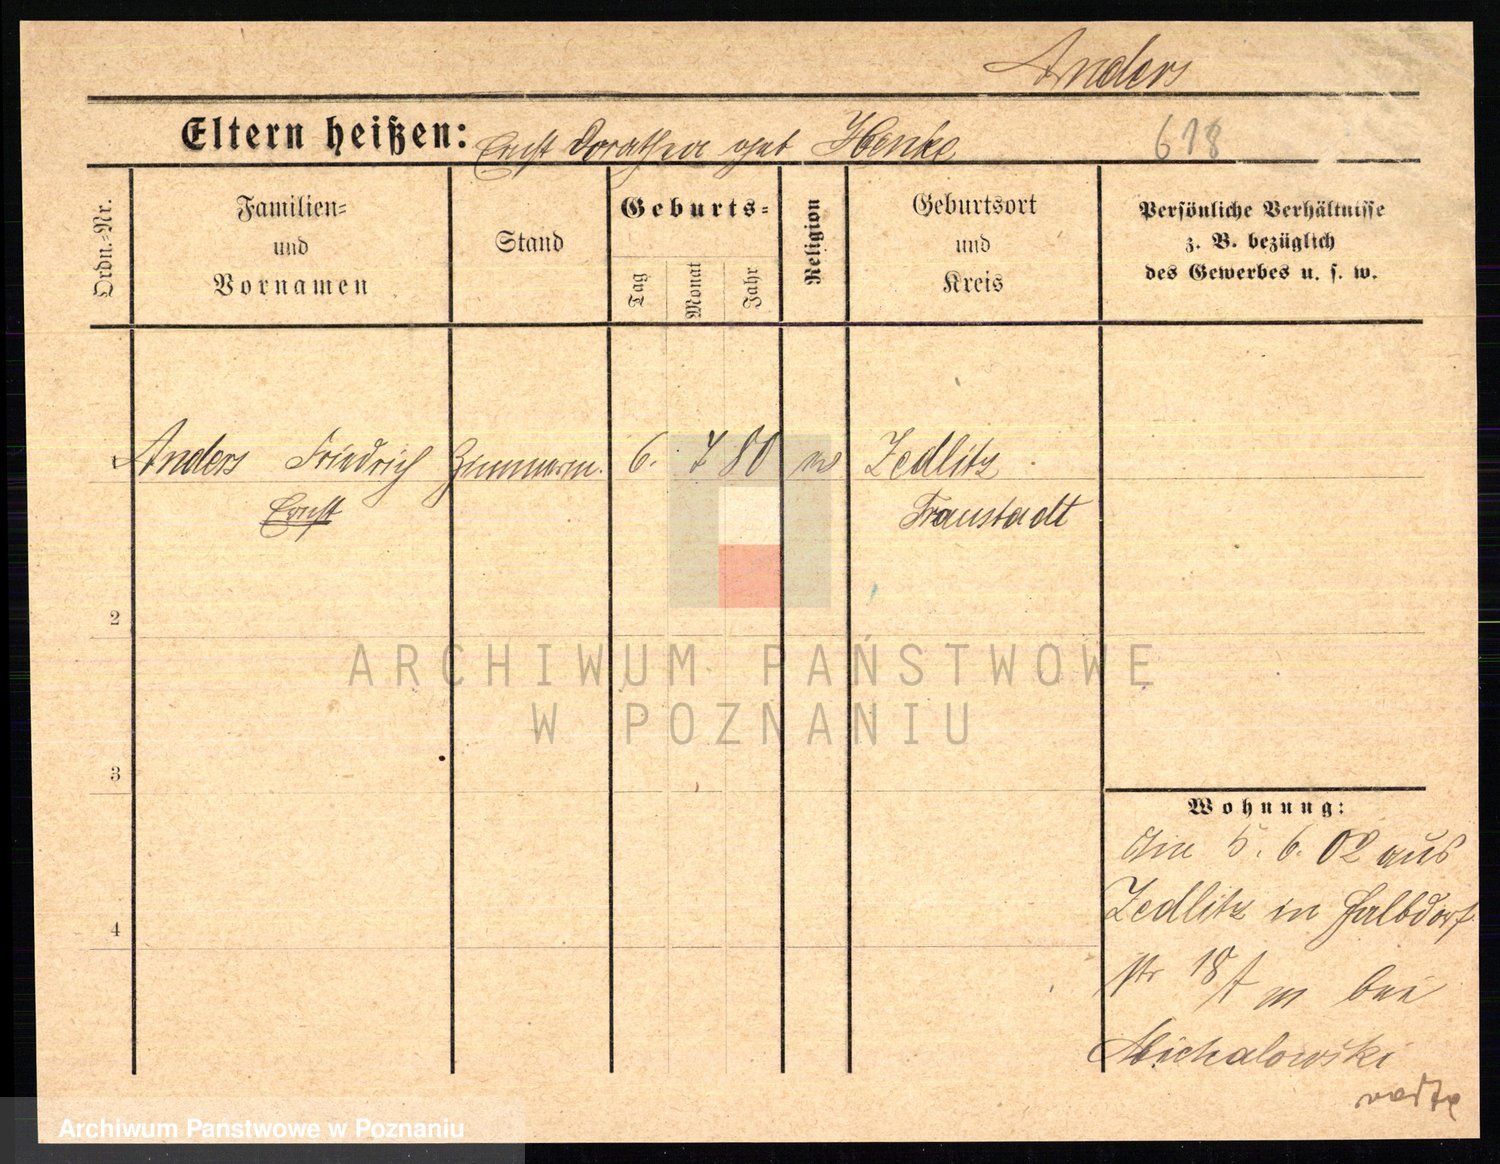 Anders
Eltern heißen: Ernst Dorothea geb Henke 618
Ordn.-Nr.
Familien-
und
Vornamen
Stand
Geburts-
Tag
Monat
Jahr
Religion
Geburtsort
und
Kreis
Persönliche Verhältnisse
z. B. bezüglich
des Gewerbes u. s. w.
1 Anders Friedrich Zimmerm. 6. 7 80 Zedlitz
Ernst Fraustadt
2
3
4
ARCHIWUM PAŃSTWOWE
W POZNANIU
Wohnung:
Am 5. 6. 02 aus
Zedlitz in Halbdorf
str 18 bei
Michalowski
Archiwum Państwowe w Poznaniu